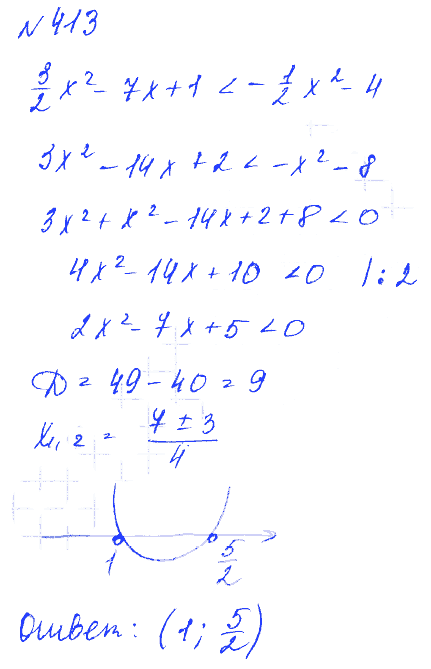 № 413
3/2 x² - 7x + 1 < - 1/2 x² - 4
3x² - 14x + 2 < -x² - 8
3x² + x² - 14x + 2 + 8 < 0
4x² - 14x + 10 < 0 | : 2
2x² - 7x + 5 < 0
D = 49 - 40 = 9
x₁,₂ = (7 ± 3)/4
1 5/2
Ответ: (1; 5/2)